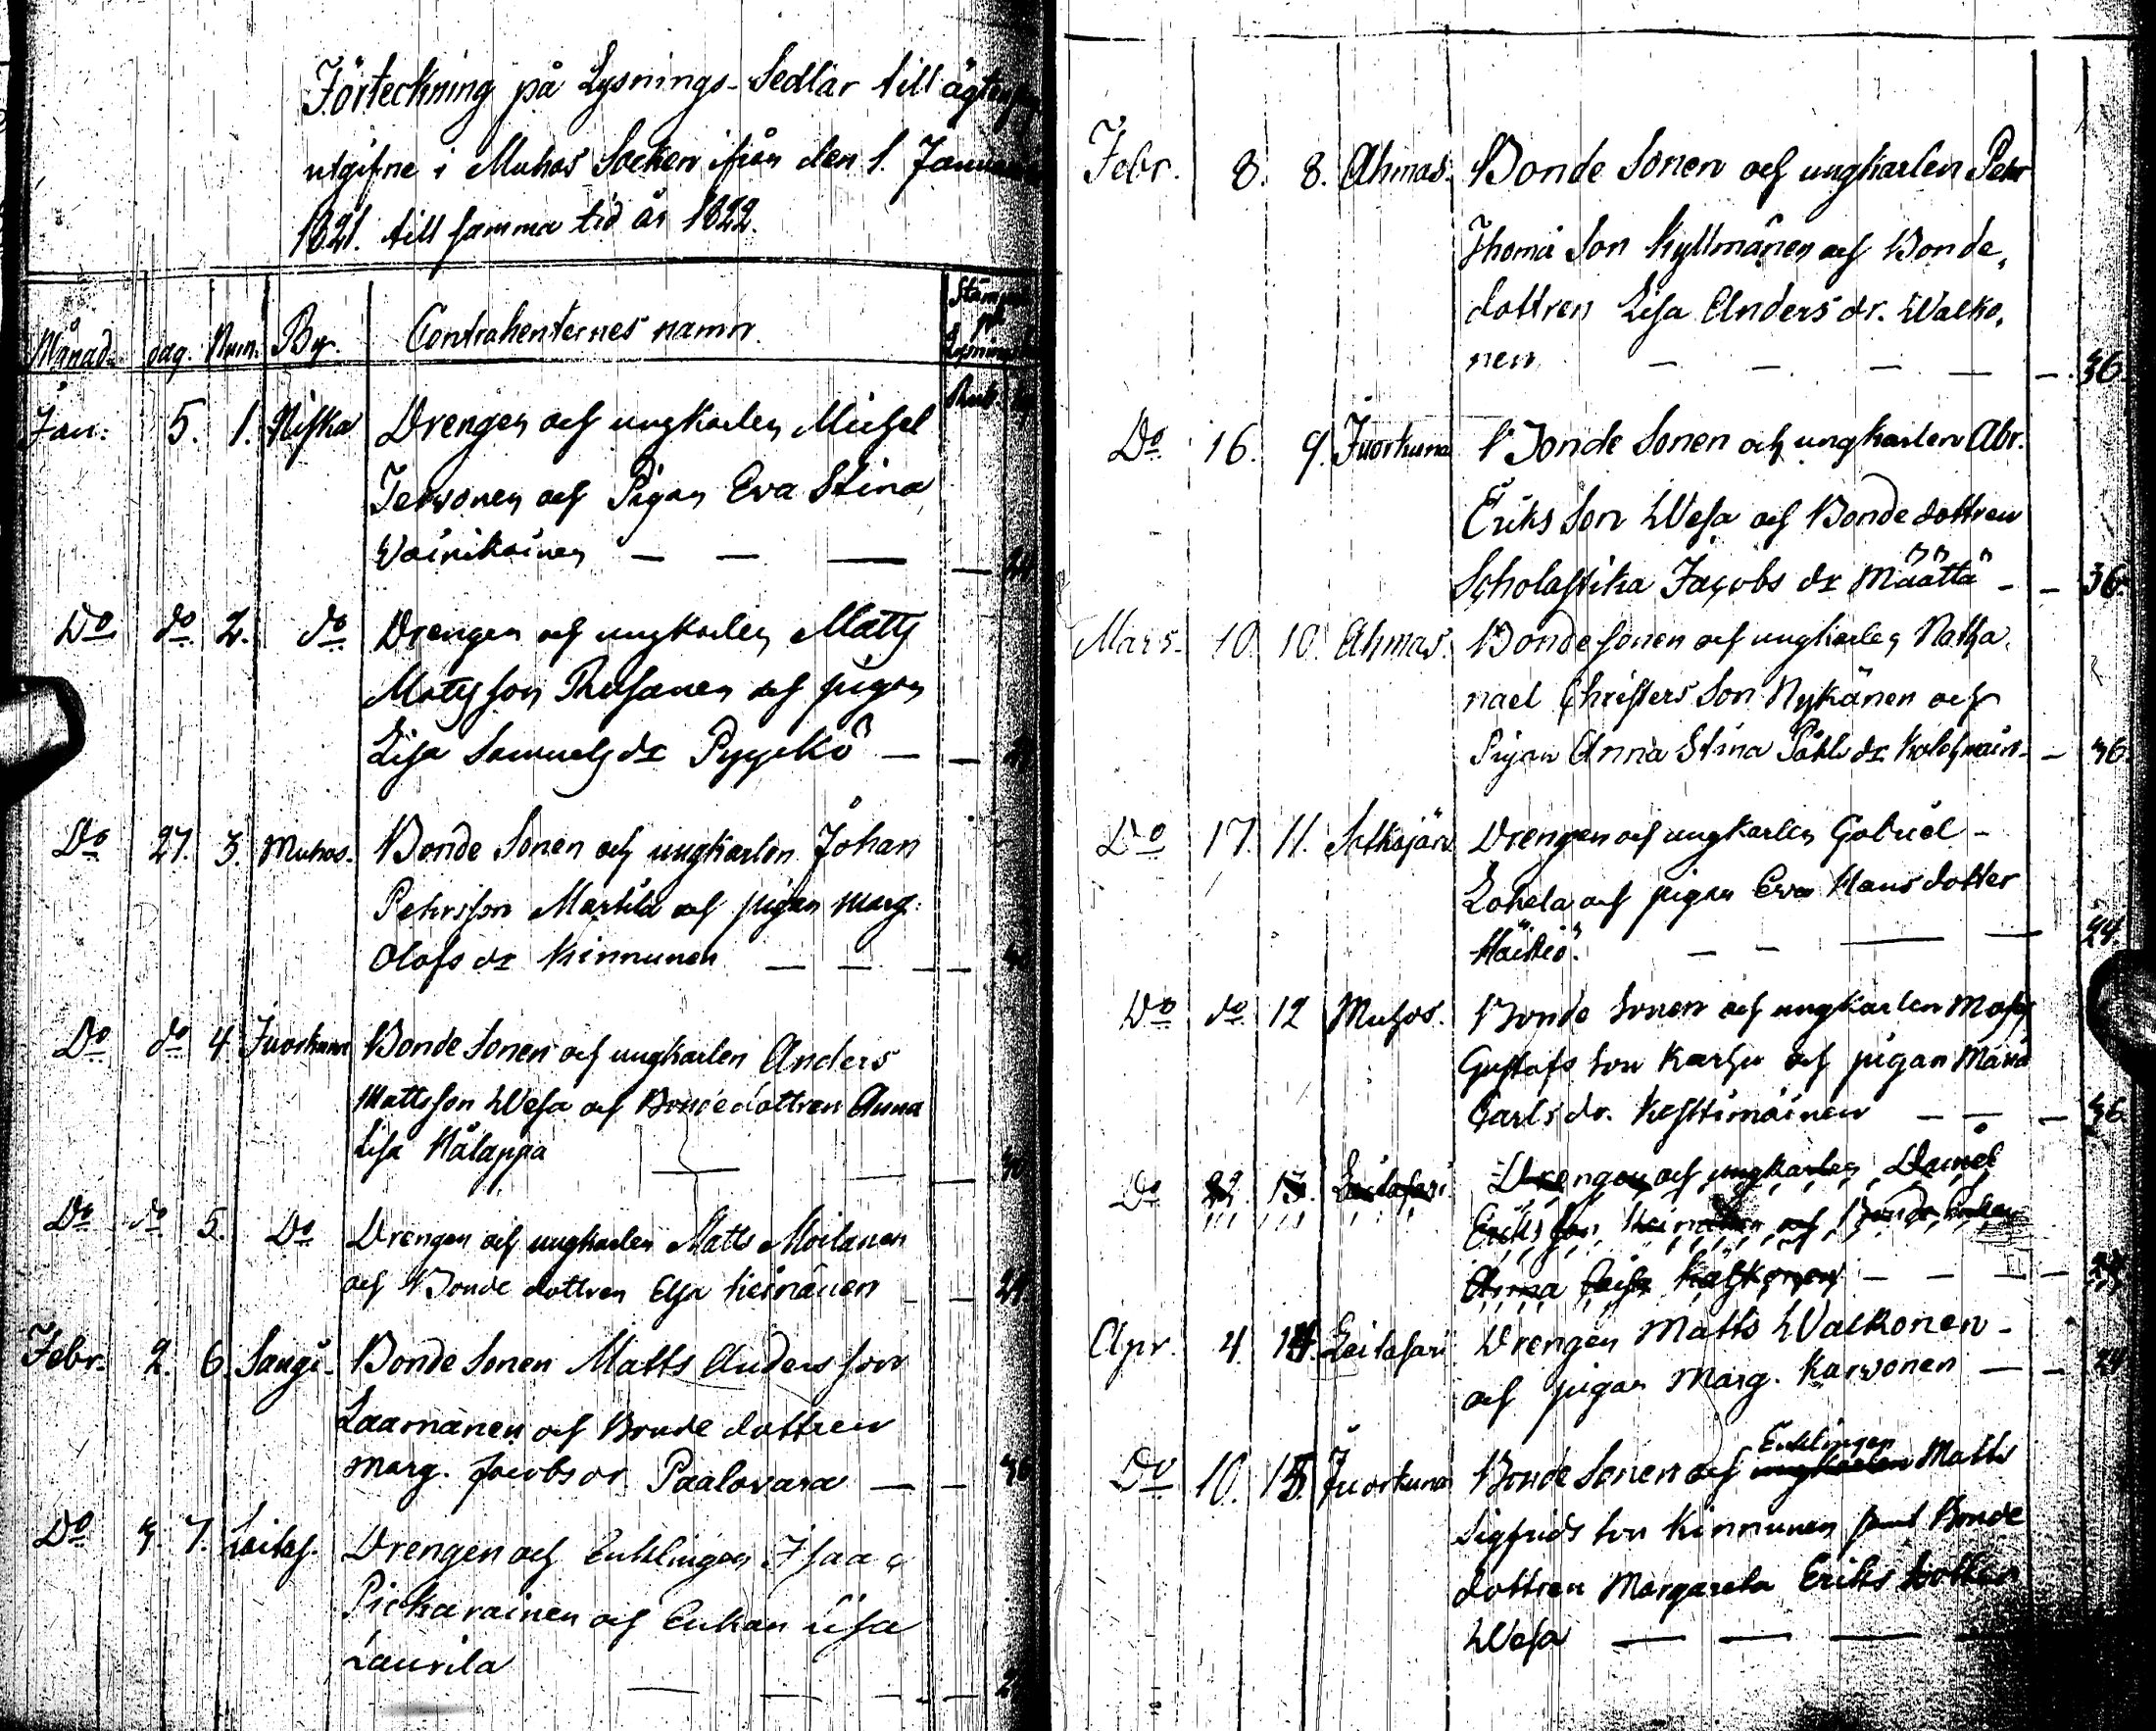 Förteckning på Lysnings-Sedlar till
utgifne i Muhos Socken ifrån den 1. Januari
1821. till samma tid år 1822.
Månad. dag. Num. By. Contrahenternes namn.
Jan: 5. 1. Niska Drengen och ungkarlen Michel
Terwonen och Pigan Eva Stina
Wäinikainen — — — — 24
Do do 2. do Drengen och ungkarlen Matts
Matsson Ruhanen och pigan
Lisa Samuels dr Pyykkö — —
Do 27. 3. Muhos. Bonde Sonen och ungkarlen Johan
Pehrsson Marttila och pigan Marg.
Olofs dr Kinnunen — — — —
Do do 4. Juorkuna Bonde Sonen och ungkarlen Anders
Mattsson Wesa och Bondedottren Anna
Lisa Kålappa — — —
Do do 5. Do Drengen och ungkarlen Matts Moilanen
och Bonde dottren Elsa Heinänen — — 24
Febr. 2. 6. Sangi. Bonde Sonen Matts Andersson
Laamanen och Bonde dottren
Marg. Jacobs dr. Paalovara — — 36
Do 7. Laitas. Drengen och Enklingen Isaac
Pickarainen och Enkan Lisa
Laurila — — — —
Febr. 8. 8. Ahmas. Bonde Sonen och ungkarlen Pehr
Thomæ Son Kyllmänen och Bonde,
dottren Lisa Anders dr. Walko,
nen — — — — — 36.
Do 16. 9. Juorkuna Bonde Sonen och ungkarlen Abr.
Eriks Son Wesa och Bonde dottren
Scholastika Jacobs dr Määttä — — 36.
Mars. 10. 10. Ahmas. Bonde sonen och ungkarlen Natha,
nael Christers Son Nykänen och
Pigan Anna Stina Påhls dr — 36.
Do 17. 11. Sotkajärv Drengen och ungkarlen Gabriel —
Lohela och pigan Eva Hans dotter
Häikiö. — — — — 24.
Do do 12 Muhos. Bonde Sonen och ungkarlen Mats
Gustafs Son Karhu och pigan Maria
Carls dr. Kesttimäinen — — — 36
Do 22. 13. Laitasari Drengen och ungkarlen Daniel
Eriks Son Heinänen och Bonde
Anna — — — — 24
Apr. 4. 14. Laitasari Drengen Matts Walkonen —
och pigan Marg. Karvonen — — 24
Enklingen
Do 10. 15. Juorkuna Bonde Sonen och ungkarlen Matts
Sigfrids Son Kinnunen samt Bonde
dottren Margareta Eriks dotter
Wesa — — — —